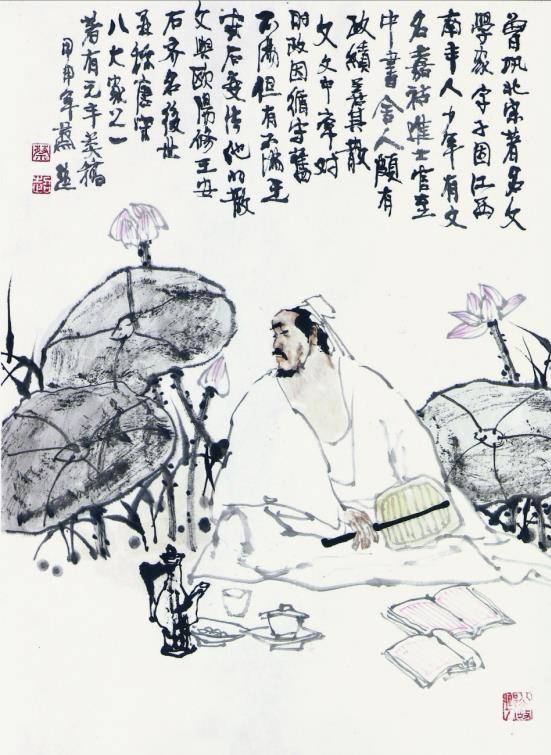 曾巩北宋著名文
學家字子固江西
南丰人少年有文
名嘉祐進士官至
中書舍人頗有
政績善其散
文文中常对
時政因循守舊
不滿但有不滿王
安石變法他的散
文與歐陽修王安
石齐名後世
并称唐宋
八大家之一
著有元丰类稿
甲申年蔡超